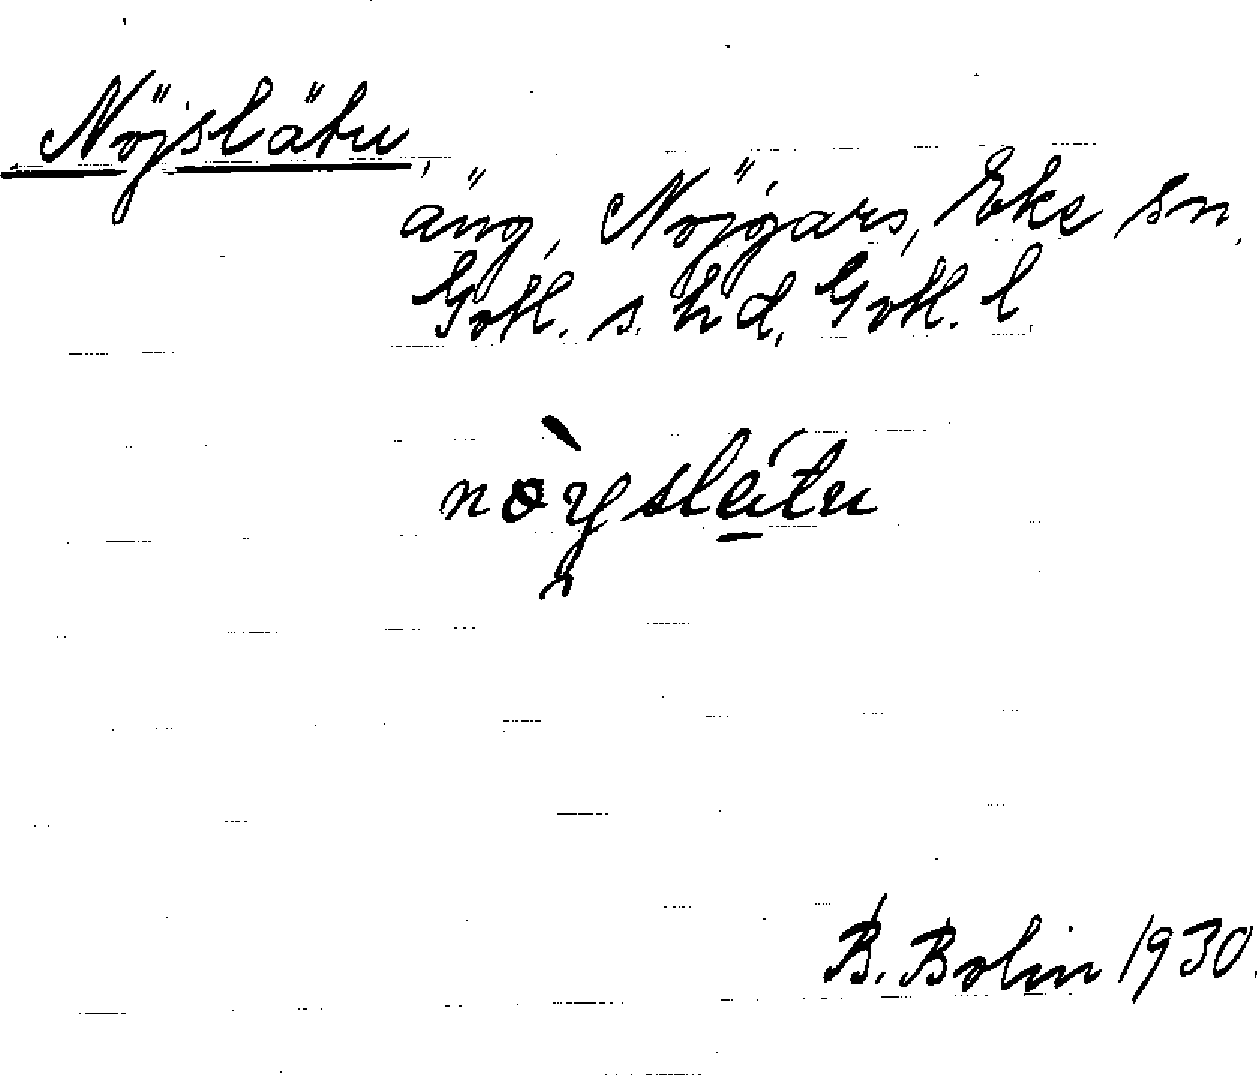 Nöjslätu
äng, Nöjgårs, Eke sn,
Gotl. s. hd, Gotl. l
B. Bolin 1930.